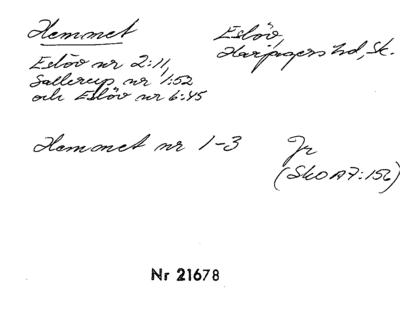 Hemmet
Eslöv,
Harjagers hd, Sk.
Eslöv nr 2:11,
Sallerup nr 1:52
och Eslöv nr 6:45
Hemmet nr 1-3
Jr
(Sk OA 7:156)
Nr 21678